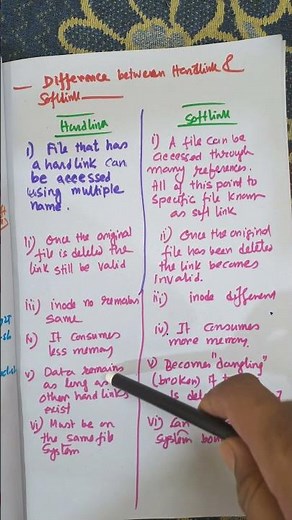 Difference between Hardlink &
Softlink
Hardlink
i) File that has
a hardlink can
be accessed
using multiple
name.
ii) Once the original
file is deleted the
link still be valid
iii) inode no remains
same
iv) It consumes
less memory
v) Data remains
as long as
other hard links
exist
vi) Must be on
the same file
system
Softlink
i) A file can be
accessed through
many references.
All of this point to
specific file known
as soft link
ii) Once the original
file has been deleted
the link becomes
invalid.
iii) inode different
iv) It consumes
more memory.
v) Becomes "dangling"
(broken) if
is
vi)
system